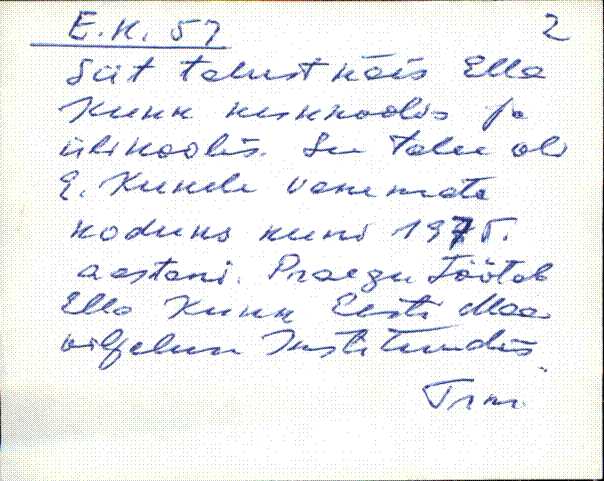 E.K. 57 2
Siit talust käis Ella
Kunk keskkoolis ja
ülikoolis. See talu oli
E. Kunele vanemate
koduks kuni 1975.
aastani. Praegu töötab
Ella Kunk Eesti Maa
viljeluse Instituudis.